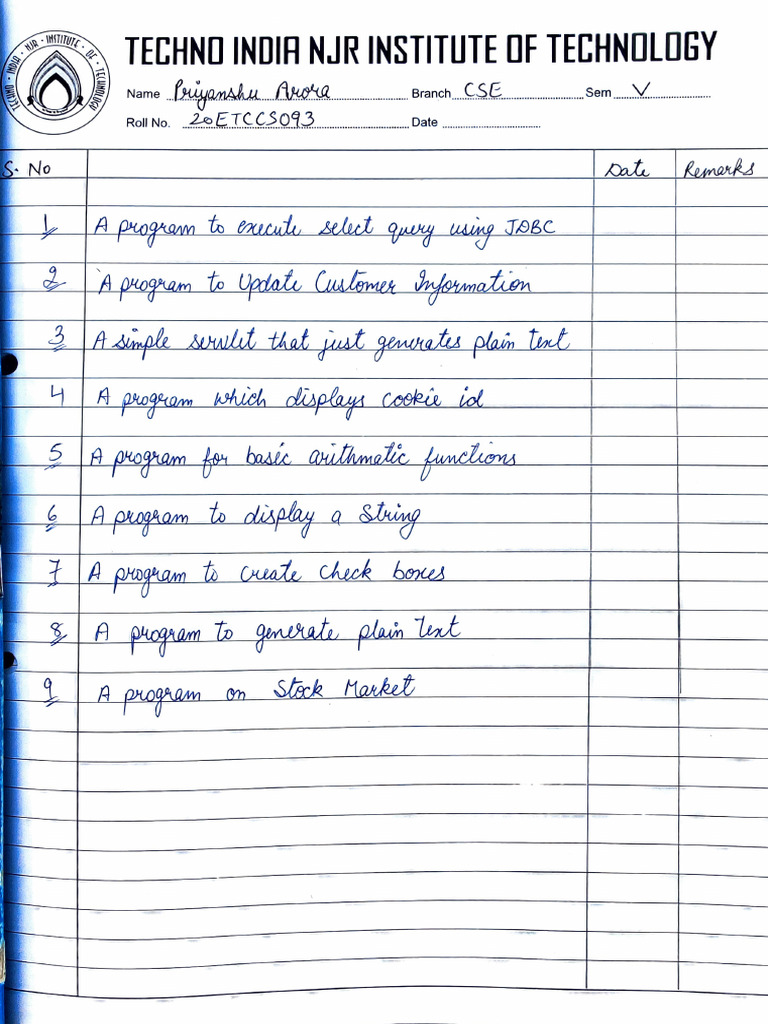 TECHNO INDIA NJR INSTITUTE OF TECHNOLOGY
TECHNO INDIA NJR INSTITUTE OF TECHNOLOGY
Name Priyanshu Arora Branch CSE Sem V
Roll No. 20ETCCS093 Date
S. No Date Remarks
1 A program to execute select query using JDBC
2 A program to Update Customer Information
3 A simple servlet that just generates plain text
4 A program which displays cookie id
5 A program for basic arithmatic functions
6 A program to display a String
7 A program to create check boxes
8 A program to generate plain Text
9 A program on Stock Market